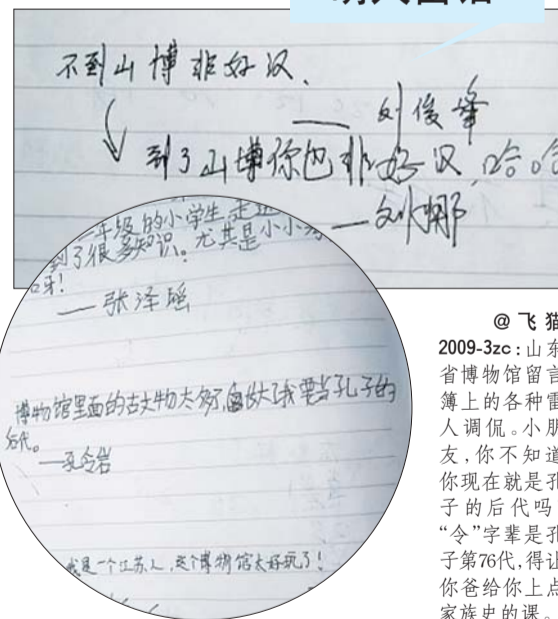 不到山博非好汉.
——刘俊峰
到了山博你也非好汉,哈哈
——刘娜
一年级的小学生,走进
到了很多知识。尤其是小小
呀!
——张泽瑶
博物馆里面的古文物太多了,长大了我要当孔子的
后代。
——孔令岩
我是一个江苏人,这个博物馆太好玩了!
@飞猫
2009-3zc:山东
省博物馆留言
簿上的各种雷
人调侃。小朋
友,你不知道
你现在就是孔
子的后代吗
“令”字辈是孔
子第76代,得让
你爸给你上点
家族史的课。